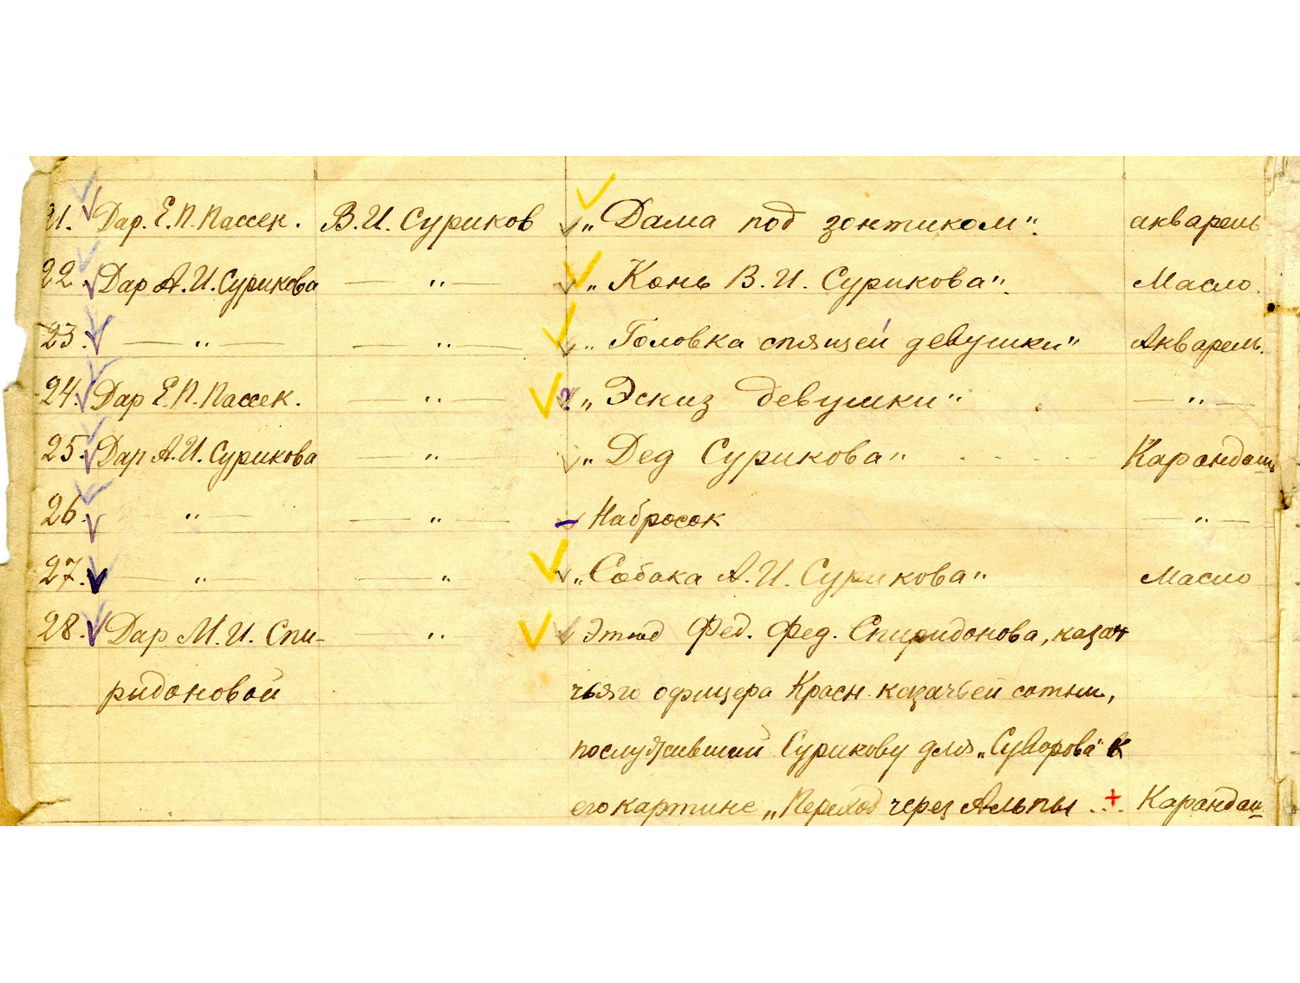 21. Дар. Е.П. Пассек. В.И. Суриков „Дама под зонтиком". акварель
22. Дар А.И. Сурикова — " — „Конь В.И. Сурикова". Масло.
23. — " — — " — „Головка спящей девушки" Акварель.
24. Дар Е.П. Пассек. — " — ? „Эскиз девушки" — " —
25. Дар А.И. Сурикова — " — „Дед Сурикова" Карандаш
26. — " — — " — Набросок — " —
27. — " — — " — „Собака А.И. Сурикова" Масло
28. Дар М.И. Спи- — " — Этюд Фед. Фед. Спиридонова, казач
ридоновой чьяго офицера Красн. казачьей сотни,
послуживший Сурикову для „Суворова" к
его картине „Переход через Альпы + Карандаш